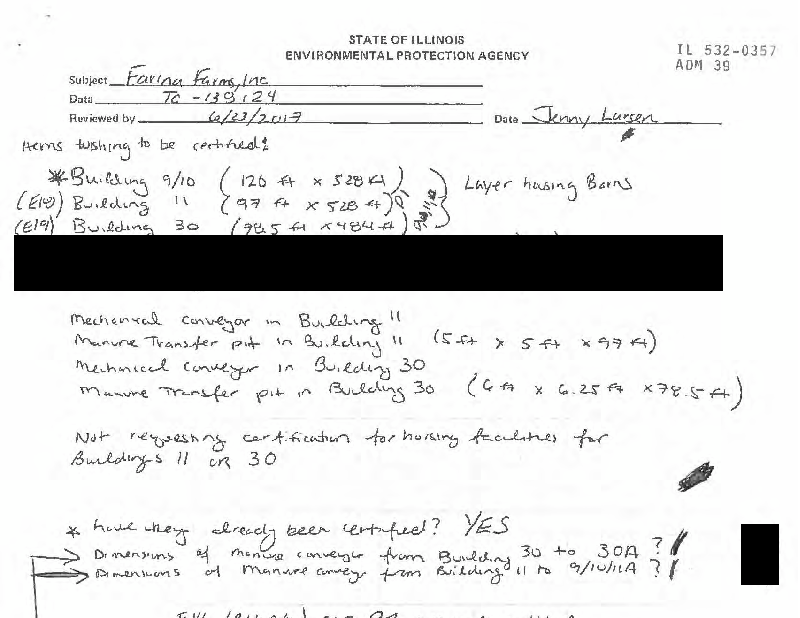 STATE OF ILLINOIS
ENVIRONMENTAL PROTECTION AGENCY
IL 532-0357
ADM 39
Subject Farina Farms, Inc
Data TC -139124
Reviewed by 6/23/2017 Date Jenny Larsen
Items wishing to be certified:
*Building 9/10 (120 ft x 528 ft) Layer housing Barns
(E18) Building 11 (97 ft x 528 ft)
(E19) Building 30 (78.5 ft x 484 ft)
Mechanical conveyor in Building 11
Manure Transfer pit in Building 11 (5 ft x 5 ft x 97 ft)
Mechanical conveyor in Building 30
Manure Transfer pit in Building 30 (6 ft x 6.25 ft x 78.5 ft)
Not requesting certification for housing facilities for
Buildings 11 or 30
* have they already been certified? YES
Dimensions of manure conveyor from Building 30 to 30A ?
Dimensions of manure conveyor from Building 11 to 9/10/11A ?